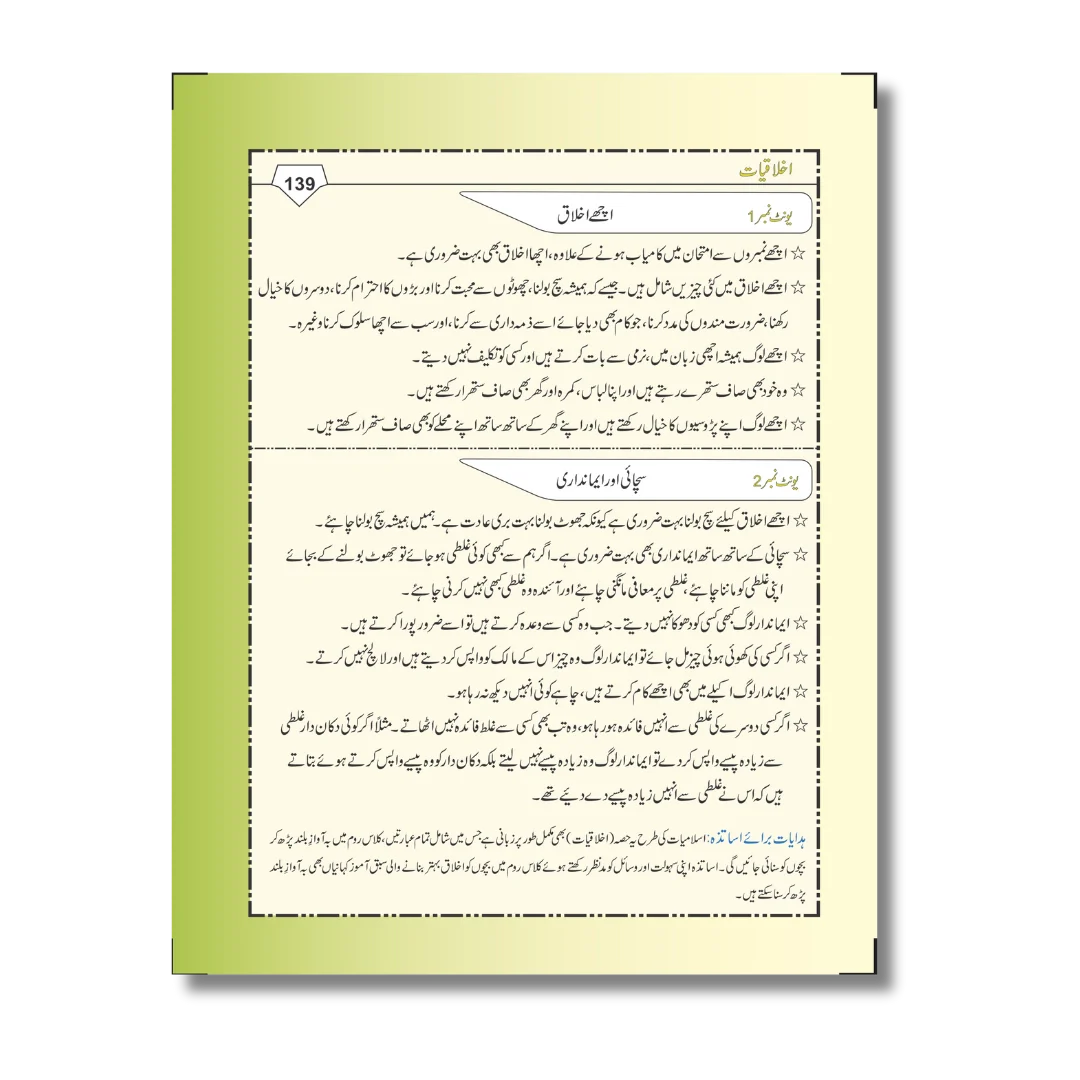 اخلاقیات
139
یونٹ نمبر 1 اچھے اخلاق
☆ اچھے نمبروں سے امتحان میں کامیاب ہونے کے علاوہ، اچھا اخلاق بھی بہت ضروری ہے۔
☆ اچھے اخلاق میں کئی چیزیں شامل ہیں۔ جیسے کہ ہمیشہ سچ بولنا، چھوٹوں سے محبت کرنا اور بڑوں کا احترام کرنا، دوسروں کا خیال
رکھنا، ضرورت مندوں کی مدد کرنا، جو کام بھی دیا جائے اسے ذمہ داری سے کرنا، اور سب سے اچھا سلوک کرنا وغیرہ۔
☆ اچھے لوگ ہمیشہ اچھی زبان میں، نرمی سے بات کرتے ہیں اور کسی کو تکلیف نہیں دیتے۔
☆ وہ خود بھی صاف ستھرے رہتے ہیں اور اپنا لباس، کمرہ اور گھر بھی صاف ستھرا رکھتے ہیں۔
☆ اچھے لوگ اپنے پڑوسیوں کا خیال رکھتے ہیں اور اپنے گھر کے ساتھ ساتھ اپنے محلے کو بھی صاف ستھرا رکھتے ہیں۔
یونٹ نمبر 2 سچائی اور ایمانداری
☆ اچھے اخلاق کیلئے سچ بولنا بہت ضروری ہے کیونکہ جھوٹ بولنا بہت بری عادت ہے۔ ہمیں ہمیشہ سچ بولنا چاہئے۔
☆ سچائی کے ساتھ ساتھ ایمانداری بھی بہت ضروری ہے۔ اگر ہم سے کبھی کوئی غلطی ہو جائے تو جھوٹ بولنے کے بجائے
اپنی غلطی کو ماننا چاہئے، غلطی پر معافی مانگنی چاہئے اور آئندہ وہ غلطی کبھی نہیں کرنی چاہئے۔
☆ ایماندار لوگ کبھی کسی کو دھوکا نہیں دیتے۔ جب وہ کسی سے وعدہ کرتے ہیں تو اسے ضرور پورا کرتے ہیں۔
☆ اگر کسی کی کھوئی ہوئی چیز مل جائے تو ایماندار لوگ وہ چیز اس کے مالک کو واپس کر دیتے ہیں اور لالچ نہیں کرتے۔
☆ ایماندار لوگ اکیلے میں بھی اچھے کام کرتے ہیں، چاہے کوئی انہیں دیکھ نہ رہا ہو۔
☆ اگر کسی دوسرے کی غلطی سے انہیں فائدہ ہو رہا ہو، وہ تب بھی کسی سے غلط فائدہ نہیں اٹھاتے۔ مثلاً اگر کوئی دکان دار غلطی
سے زیادہ پیسے واپس کر دے تو ایماندار لوگ وہ زیادہ پیسے نہیں لیتے بلکہ دکان دار کو وہ پیسے واپس کرتے ہوئے بتاتے
ہیں کہ اس نے غلطی سے انہیں زیادہ پیسے دے دیئے تھے۔
ہدایات برائے اساتذہ: اسلامیات کی طرح یہ حصہ (اخلاقیات) بھی مکمل طور پر زبانی ہے جس میں شامل تمام عبارتیں، کلاس روم میں بہ آواز بلند پڑھ کر
بچوں کو سنائی جائیں گی۔ اساتذہ اپنی سہولت اور وسائل کو مدنظر رکھتے ہوئے کلاس روم میں بچوں کو اخلاق بہتر بنانے والی سبق آموز کہانیاں بھی بہ آواز بلند
پڑھ کر سنا سکتے ہیں۔